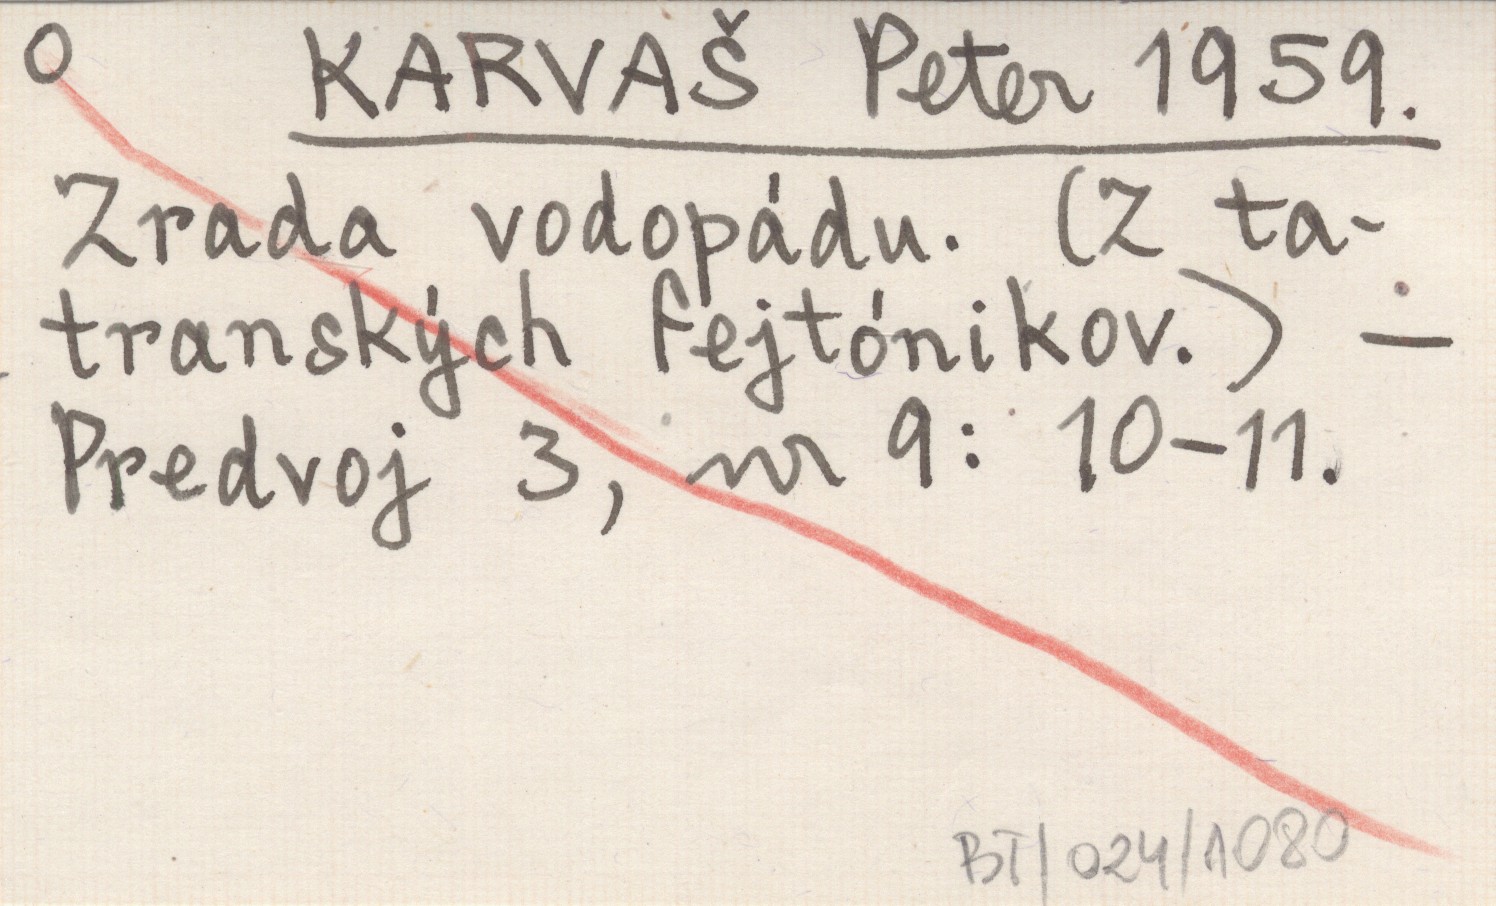 O KARVAŠ Peter 1959.
Zrada vodopádu. (Z ta-
tranských fejtónikov.) —
Predvoj 3, nr 9: 10-11.
BT/024/1080